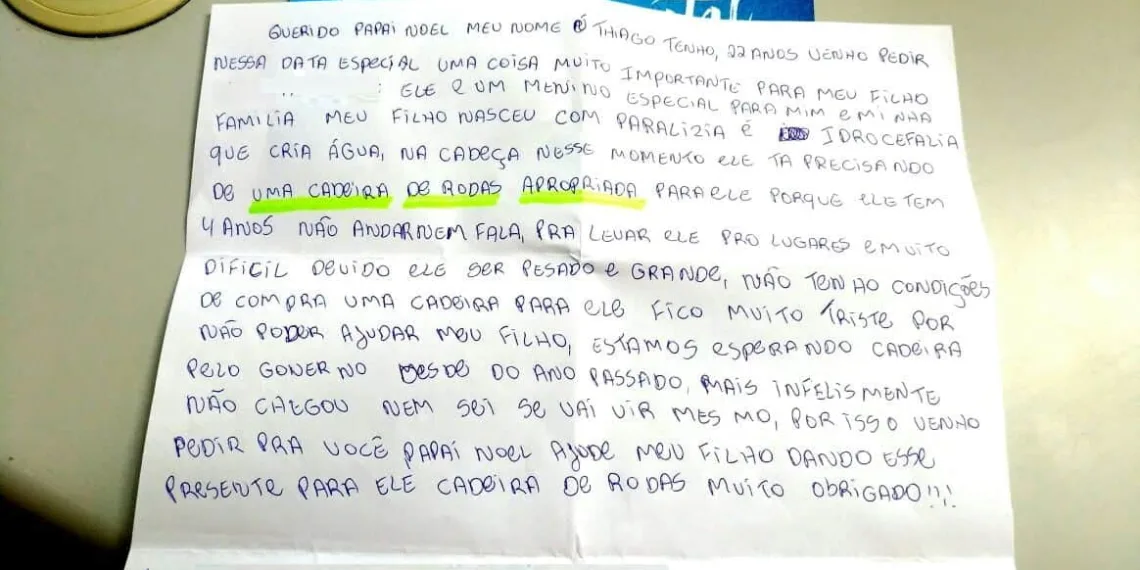 QUERIDO PAPAI NOEL MEU NOME É THIAGO TENHO, 22 ANOS VENHO PEDIR
NESSA DATA ESPECIAL UMA COISA MUITO IMPORTANTE PARA MEU FILHO
: ELE E UM MENINO ESPECIAL PARA MIM E MINHA
FAMILIA MEU FILHO NASCEU COM PARALIZIA É IDROCEFALIA
QUE CRIA ÁGUA, NA CABEÇA NESSE MOMENTO ELE TA PRECISANDO
DE UMA CADEIRA DE RODAS APROPRIADA PARA ELE PORQUE ELE TEM
4 ANOS NÃO ANDAR NEM FALA, PRA LEVAR ELE PRO LUGARES E MUITO
DIFICIL DEVIDO ELE SER PESADO E GRANDE, NÃO TENHO CONDIÇÕES
DE COMPRA UMA CADEIRA PARA ELE FICO MUITO TRISTE POR
NÃO PODER AJUDAR MEU FILHO, ESTAMOS ESPERANDO CADEIRA
PELO GONERNO DESDE DO ANO PASSADO, MAIS INFELISMENTE
NÃO CHEGOU NEM SEI SE VAI VIR MESMO, POR ISSO VENHO
PEDIR PRA VOCÊ PAPAI NOEL AJUDE MEU FILHO DANDO ESSE
PRESENTE PARA ELE CADEIRA DE RODAS MUITO OBRIGADO!!!